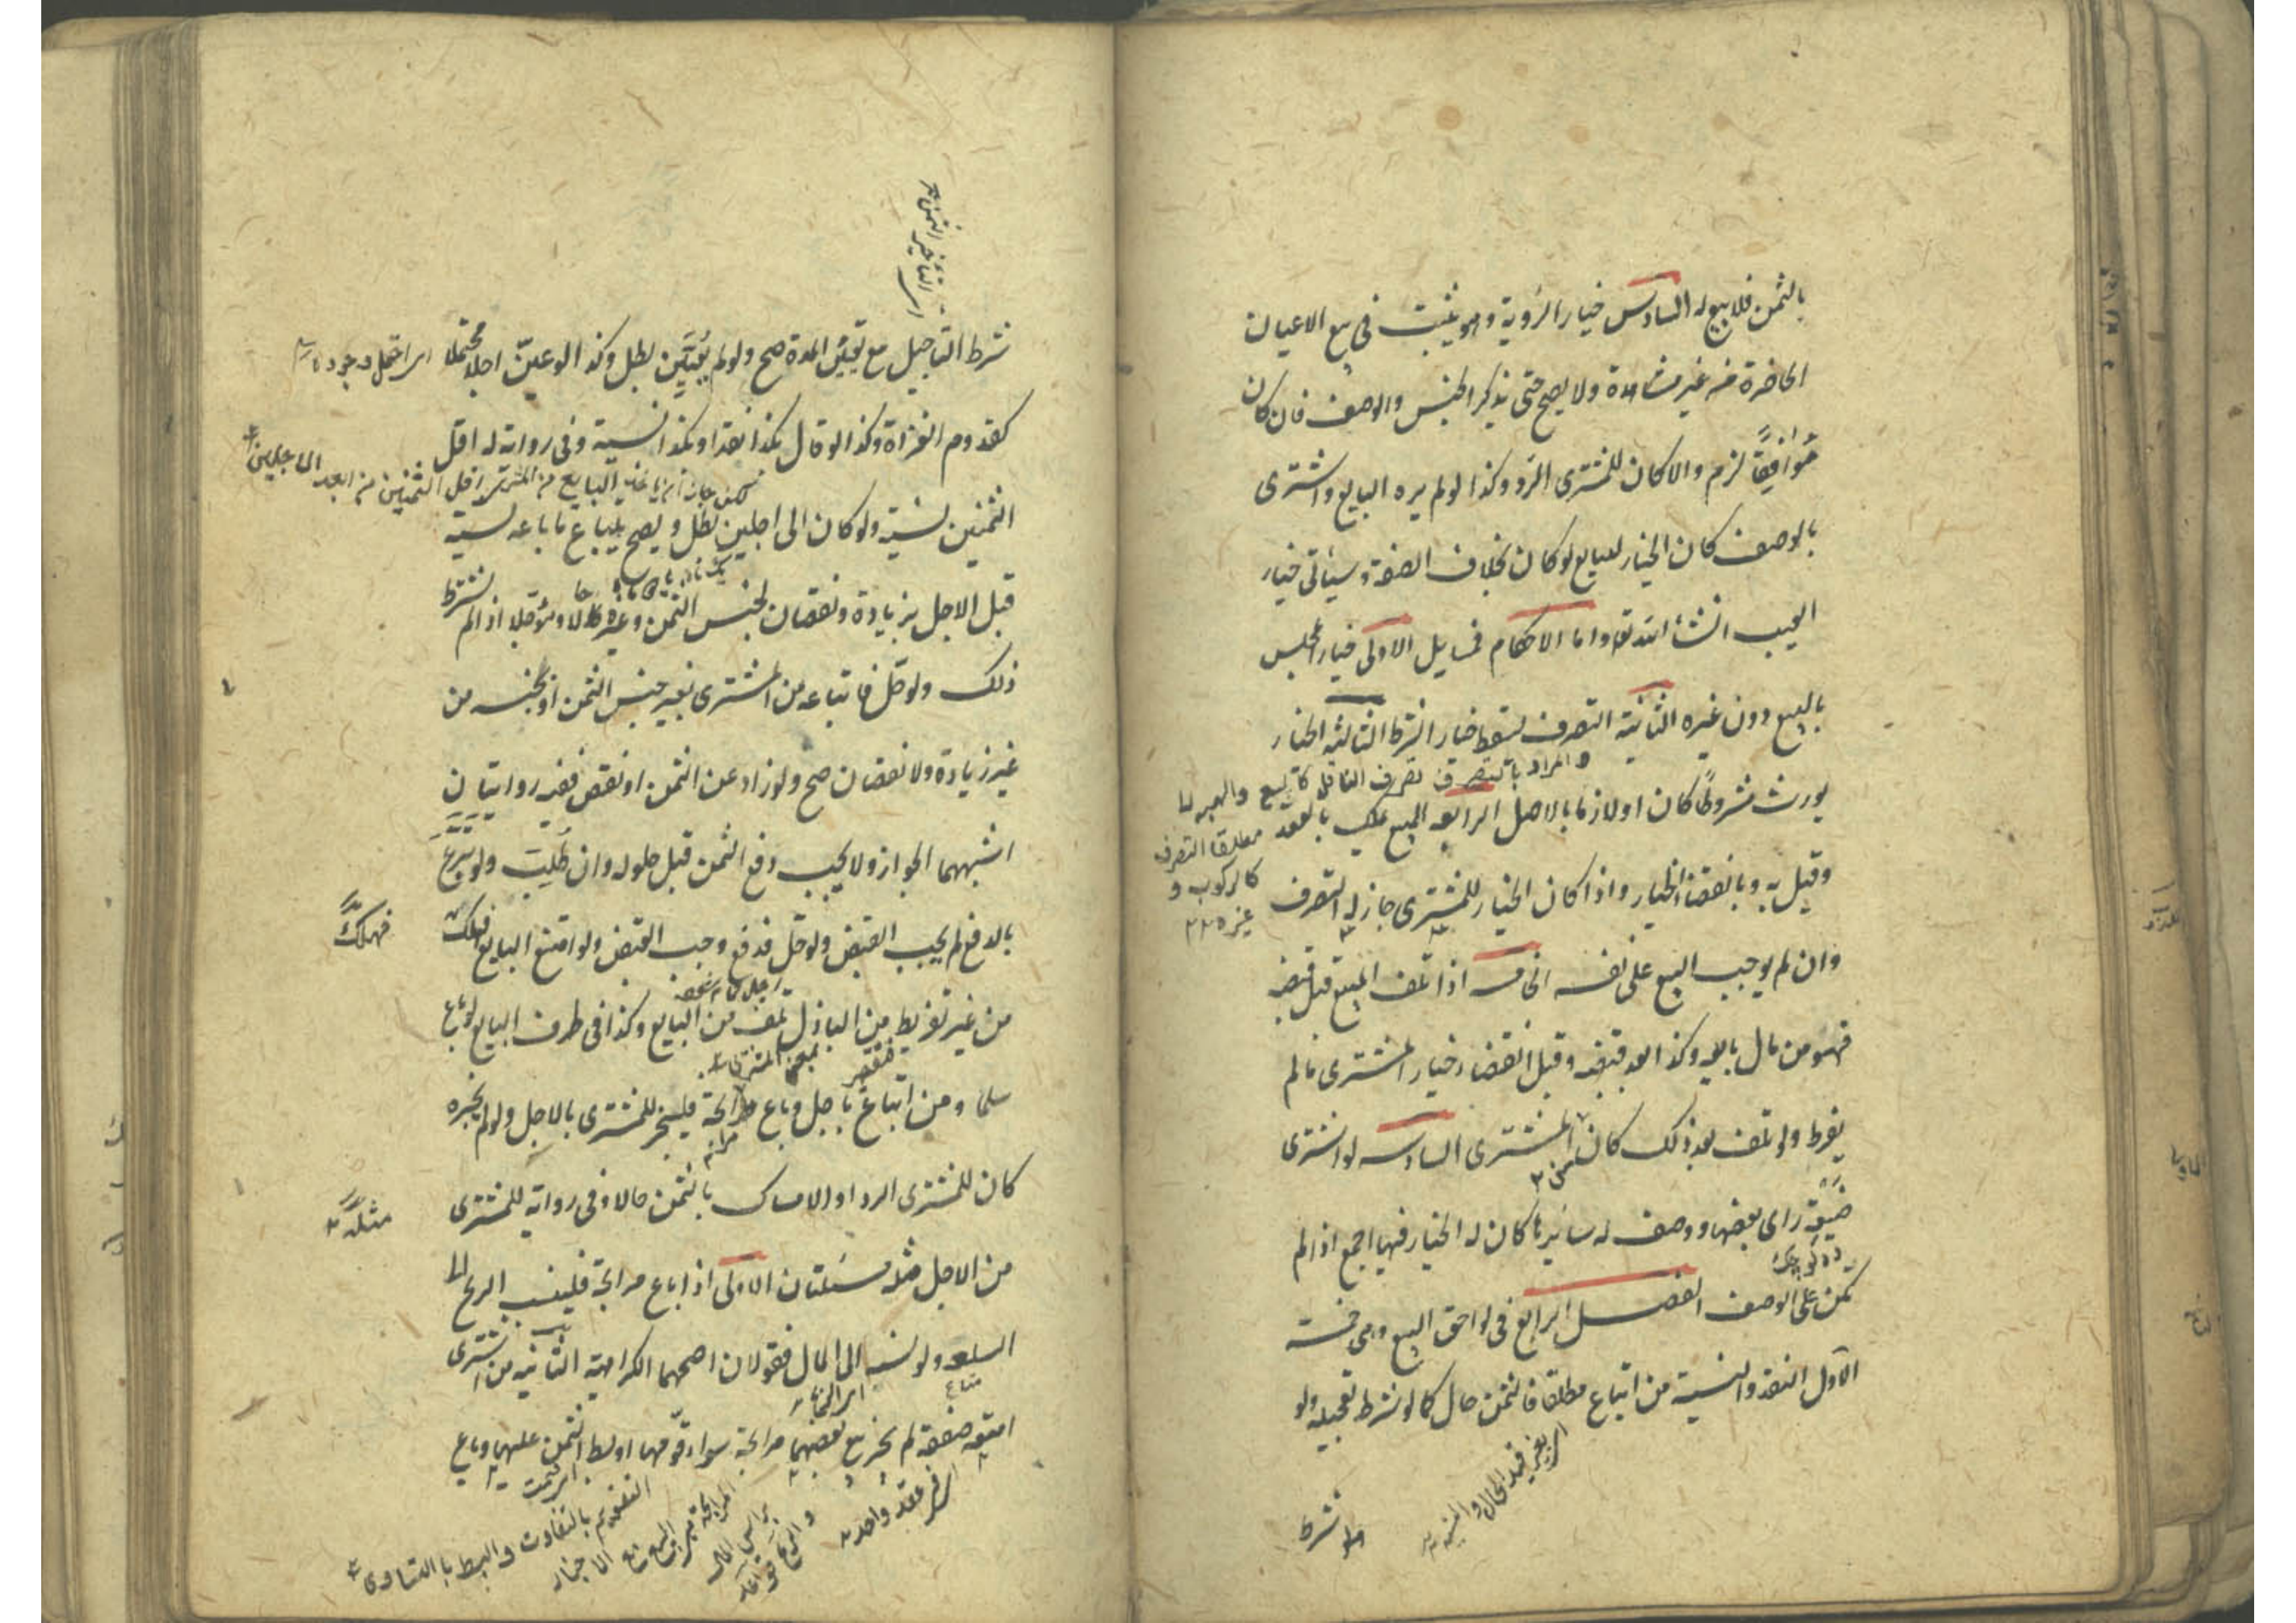 بالثمن فلا بيع له السادس خيار الروية وهو يثبت في بيع الاعيان
الحاضرة من غير مشاهدة ولا يصح حتى يذكر الجنس والوصف فان كان
مُوافِقًا لزم والا كان للمشترى الرد وكذا لو لم يره البايع واشترى
بالوصف كان الخيار للبايع لو كان بخلاف الصفة وسيأتى خيار
العيب انشأ الله تعـ واما الاحكام فمسايل الاولى خيار المجلس
بالبيع دون غيره الثانية التصرف يسقط خيار الشرط الثالثة الخيار
والمراد بالتصرف تصرف الناقل كالبيع والهبه لا
يورث مشروطًا كان اولازما بالاصل الرابعه المبيع يملك بالعقد
مطلقا التصرف
كالركوب و
غيره ١٢
وقيل به وبانقضاء الخيار واذا كان الخيار للمشترى جاز له التصرف
وان لم يوجب البيع على نفسه الخامسه اذا تلف المبيع قبل قبضه
فهو من مال بايعه وكذا بعد قبضه وقبل انقضاء خيار المشترى مالم
يفرط ولو تلف بعد ذلك كان من المشترى السادسه لو اشترى
ضَيعَةً راى بعضها ووصف له سائرها كان له الخيار فيها اجمع اذا لم
يكن على الوصف الفصل الرابع فى لواحق البيع وهى خمسة
الاول النقد والنسية من ابتاع مطلقا فالثمن حال كما لو شرط تعجيله ولو
اى بغير قيد الحال والنسيه ١٢
ولو شرط
شرط التأجيل مع تعيين المدة صح ولو لم يُعَيَّن بطل وكذا لو عيّن اجلا محتملا
كقدوم الغزاة وكذا لو قال بكذا نقدا وبكذا نسية وفى رواية له اقل
الثمنين نسية ولو كان الى اجلين بطل ويصح يبتاع ما باعه نسية
قبل الاجل بزيادة ونقصان بجنس الثمن وغيره حالا ومؤجلا اذا لم يشترط
ذلك ولو حلّ فابتاعه من المشترى بغير جنس الثمن او بجنسه من
غير زيادة ولا نقصان صح ولو زاد عن الثمن او نقص ففيه روايتان
اشبههما الجواز ولا يجب دفع الثمن قبل حلوله وان طُلِبَ ولو تبرع
بالدفع لم يجب القبض ولو حلّ فدفع وجب القبض ولو امتنع البايع فهلك
فهلك
من غير تفريط من الباذل تلف من البايع وكذا فى طرف البايع لو باع
سلما ومن ابتاع باجل وباع مرابحة فليخبر المشترى بالاجل ولو لم يخبره
كان للمشترى الرد او الامساك بالثمن حالا وفى رواية للمشترى
مثله
من الاجل مثله مسئلتان الاولى اذا باع مرابحة فلينسب الربح الى
السلعه ولو نسبه الى المال فقولان اصحهما الكراهية الثانيه من اشترى
متاع
امتعه صفقة لم يجز بيع بعضها مرابحة سواء قوّمها او بسط الثمن عليها وباع
اى فى عقد واحد
التقويم بالتفاوت والبسط بالتساوى